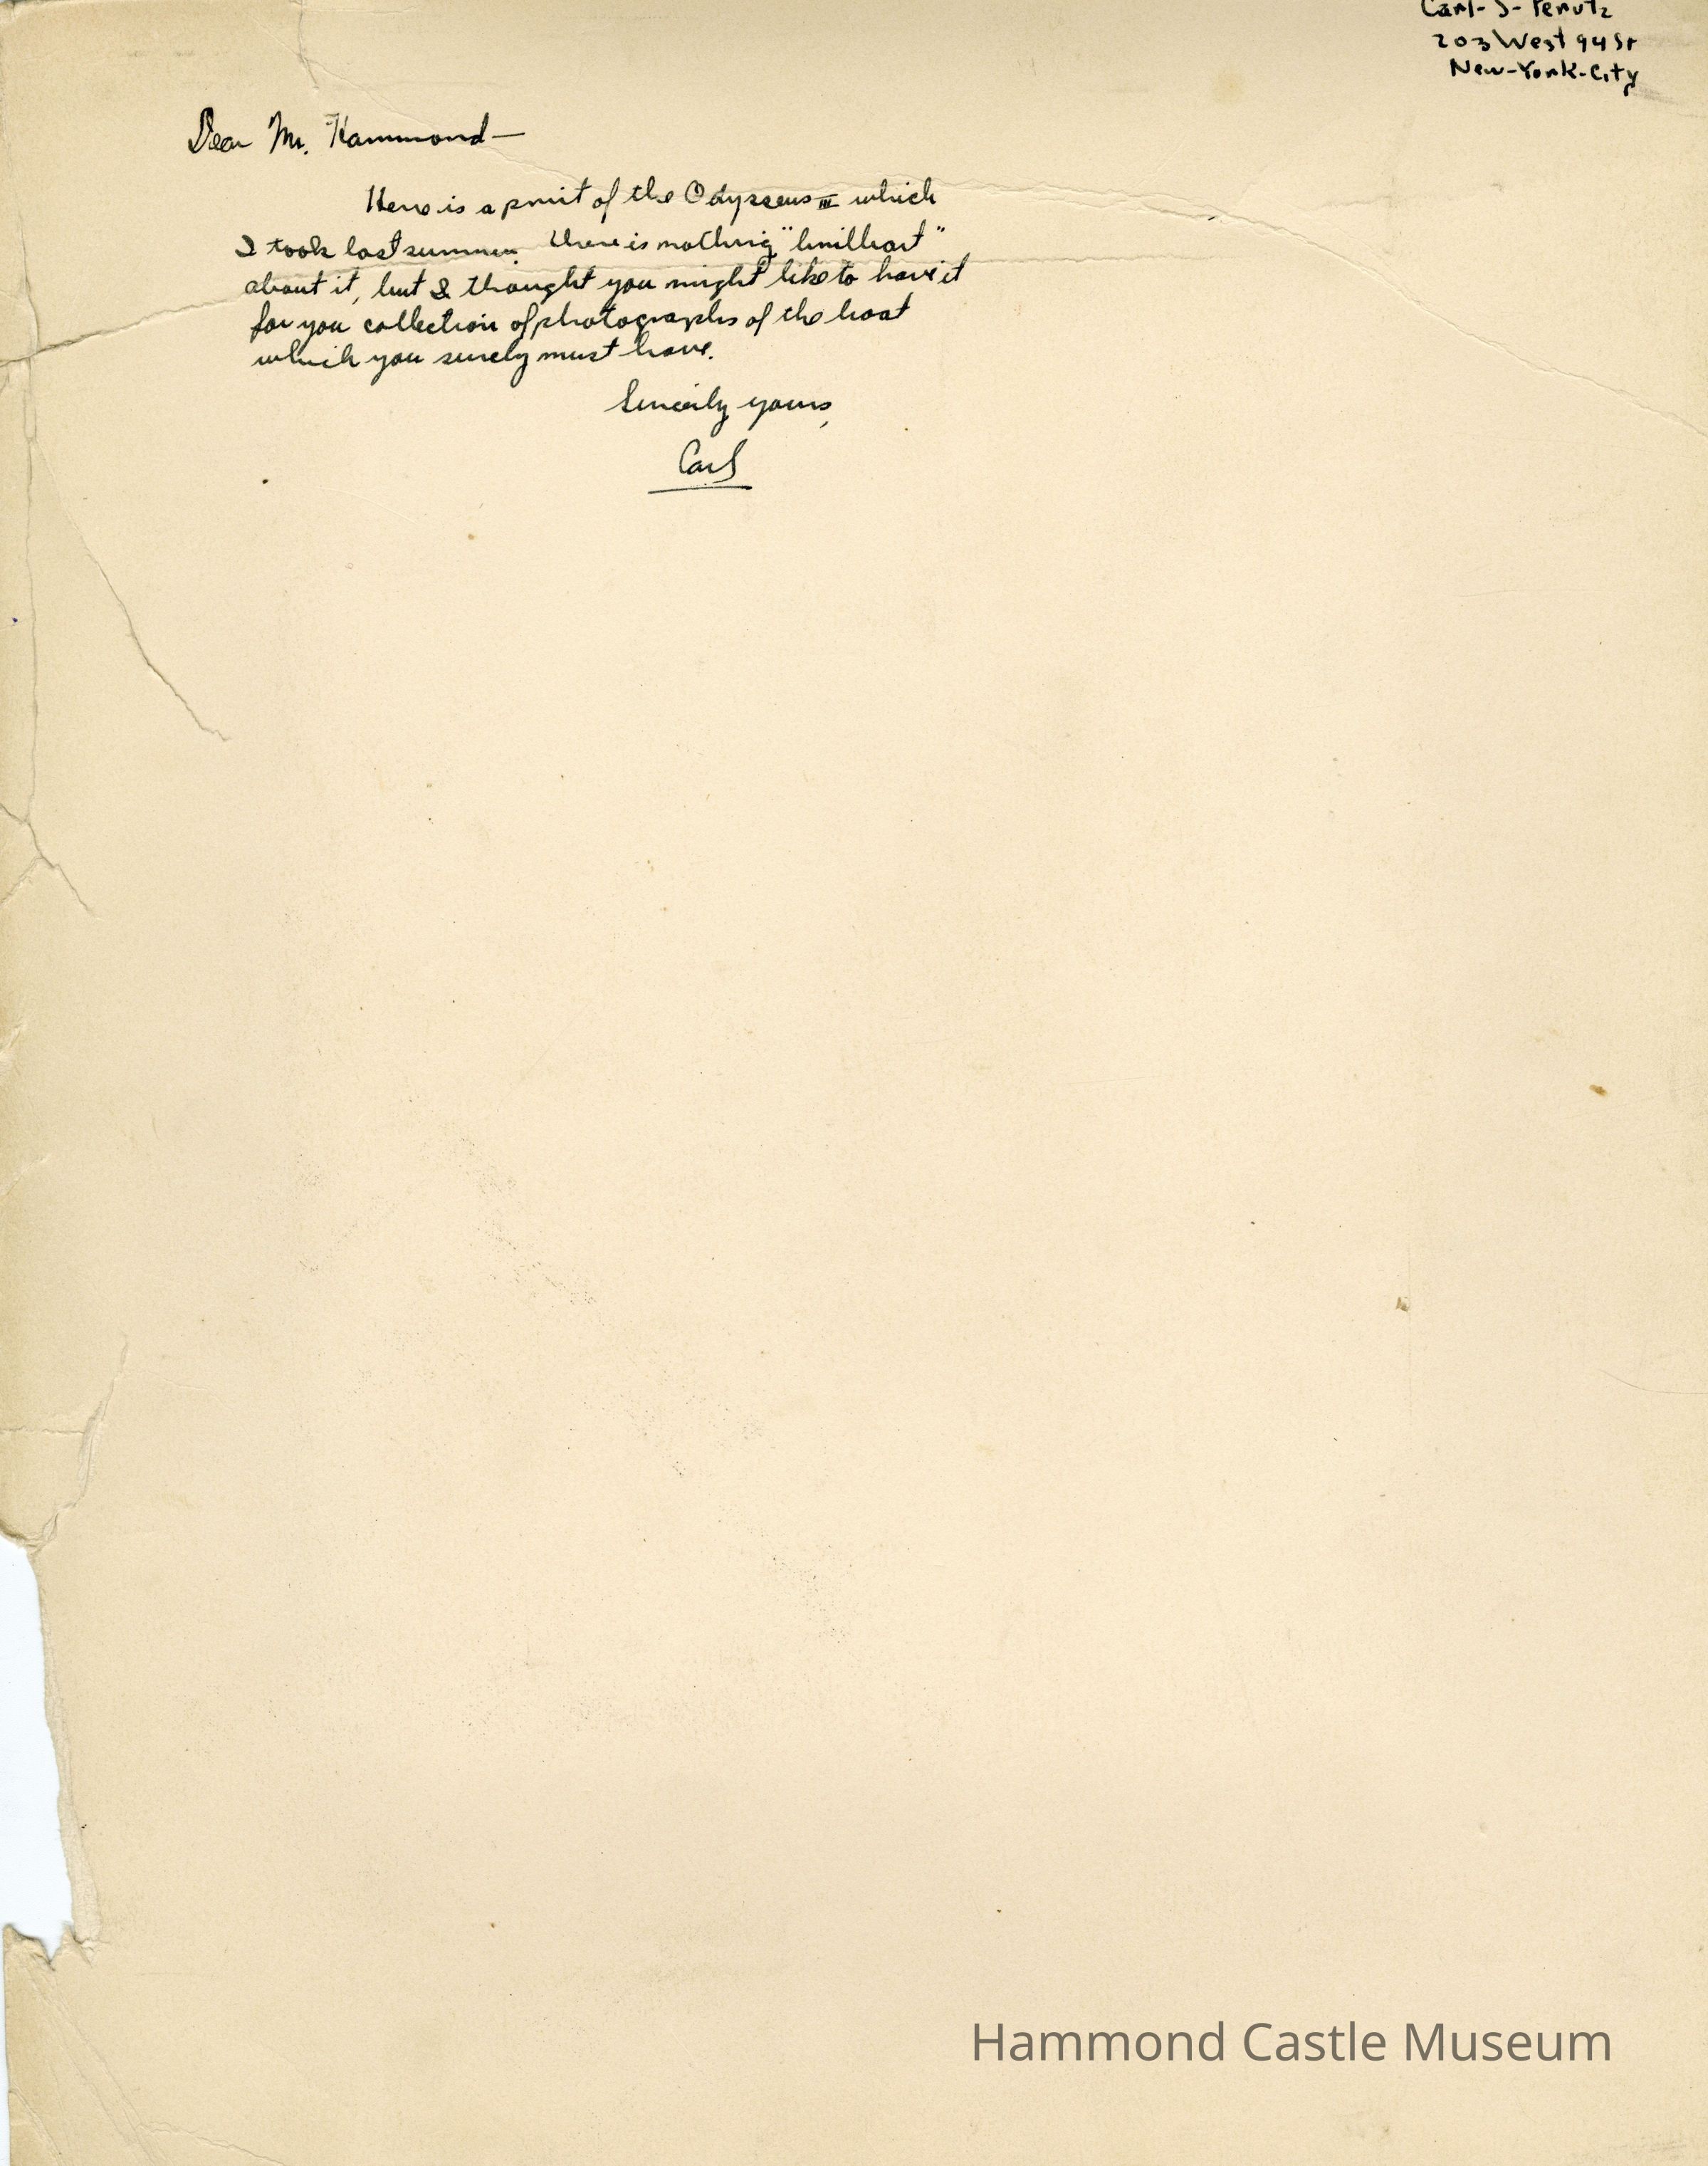 Carl-S-Perutz
203 West 94 St
New-York-City
Dear Mr. Hammond—
Here is a print of the Odysseus III which
I took last summer. There is nothing "brilliant"
about it, but I thought you might like to have it
for you collection of photographs of the boat
which you surely must have.
Sincerly yours,
Carl
Hammond Castle Museum